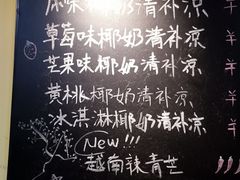 味椰奶清补凉
草莓味椰奶清补凉
芒果味椰奶清补凉
黄桃椰奶清补凉
冰淇淋椰奶清补凉
New!!!
越南辣青芒